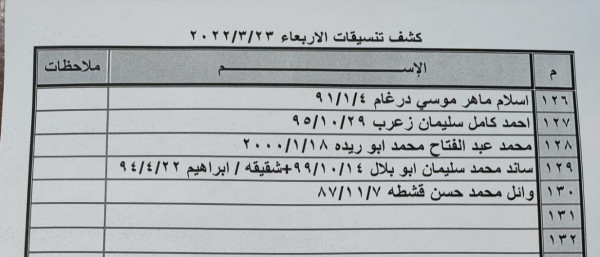 كشف تنسيقات الاربعاء ٢٠٢٢/٣/٢٣
م الإســـــــــم ملاحظات
١٢٦ اسلام ماهر موسي درغام ٩١/١/٤
١٢٧ احمد كامل سليمان زعرب ٩٥/١٠/٢٩
١٢٨ محمد عبد الفتاح محمد ابو ريده ٢٠٠٠/١/١٨
١٢٩ سائد محمد سليمان ابو بلال ٩٩/١٠/١٤+شقيقه / ابراهيم ٩٤/٤/٢٢
١٣٠ وائل محمد حسن قشطه ٨٧/١١/٧
١٣١
١٣٢